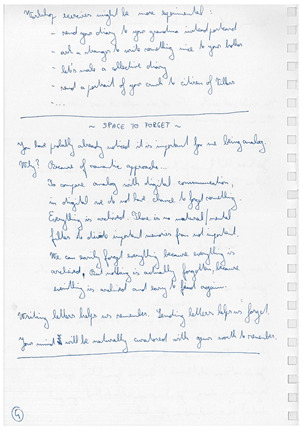 Workshop exercises might be more experimental :
- send your diary to your grandma instead postcard
- ask a stranger to write something nice to your
- let's make a collective diary
- send a portrait of your to citizen of
- ...
~ SPACE TO FORGET ~
You have probably already noticed it is important for me being analog.
Why? Because of romantic approach...
To compare analog with digital communication,
in digital we do not have chance to forget something.
Everything is archived. There is no natural/mental
filter to divide important memories from not important.
We can easily forget everything because everything is
archived. But nothing is actually forgotten because
everything is archived and easy to found again.
Writing letters helps us remember. Sending letters helps us forget.
Your mind will be naturally curatored with worth to remember.